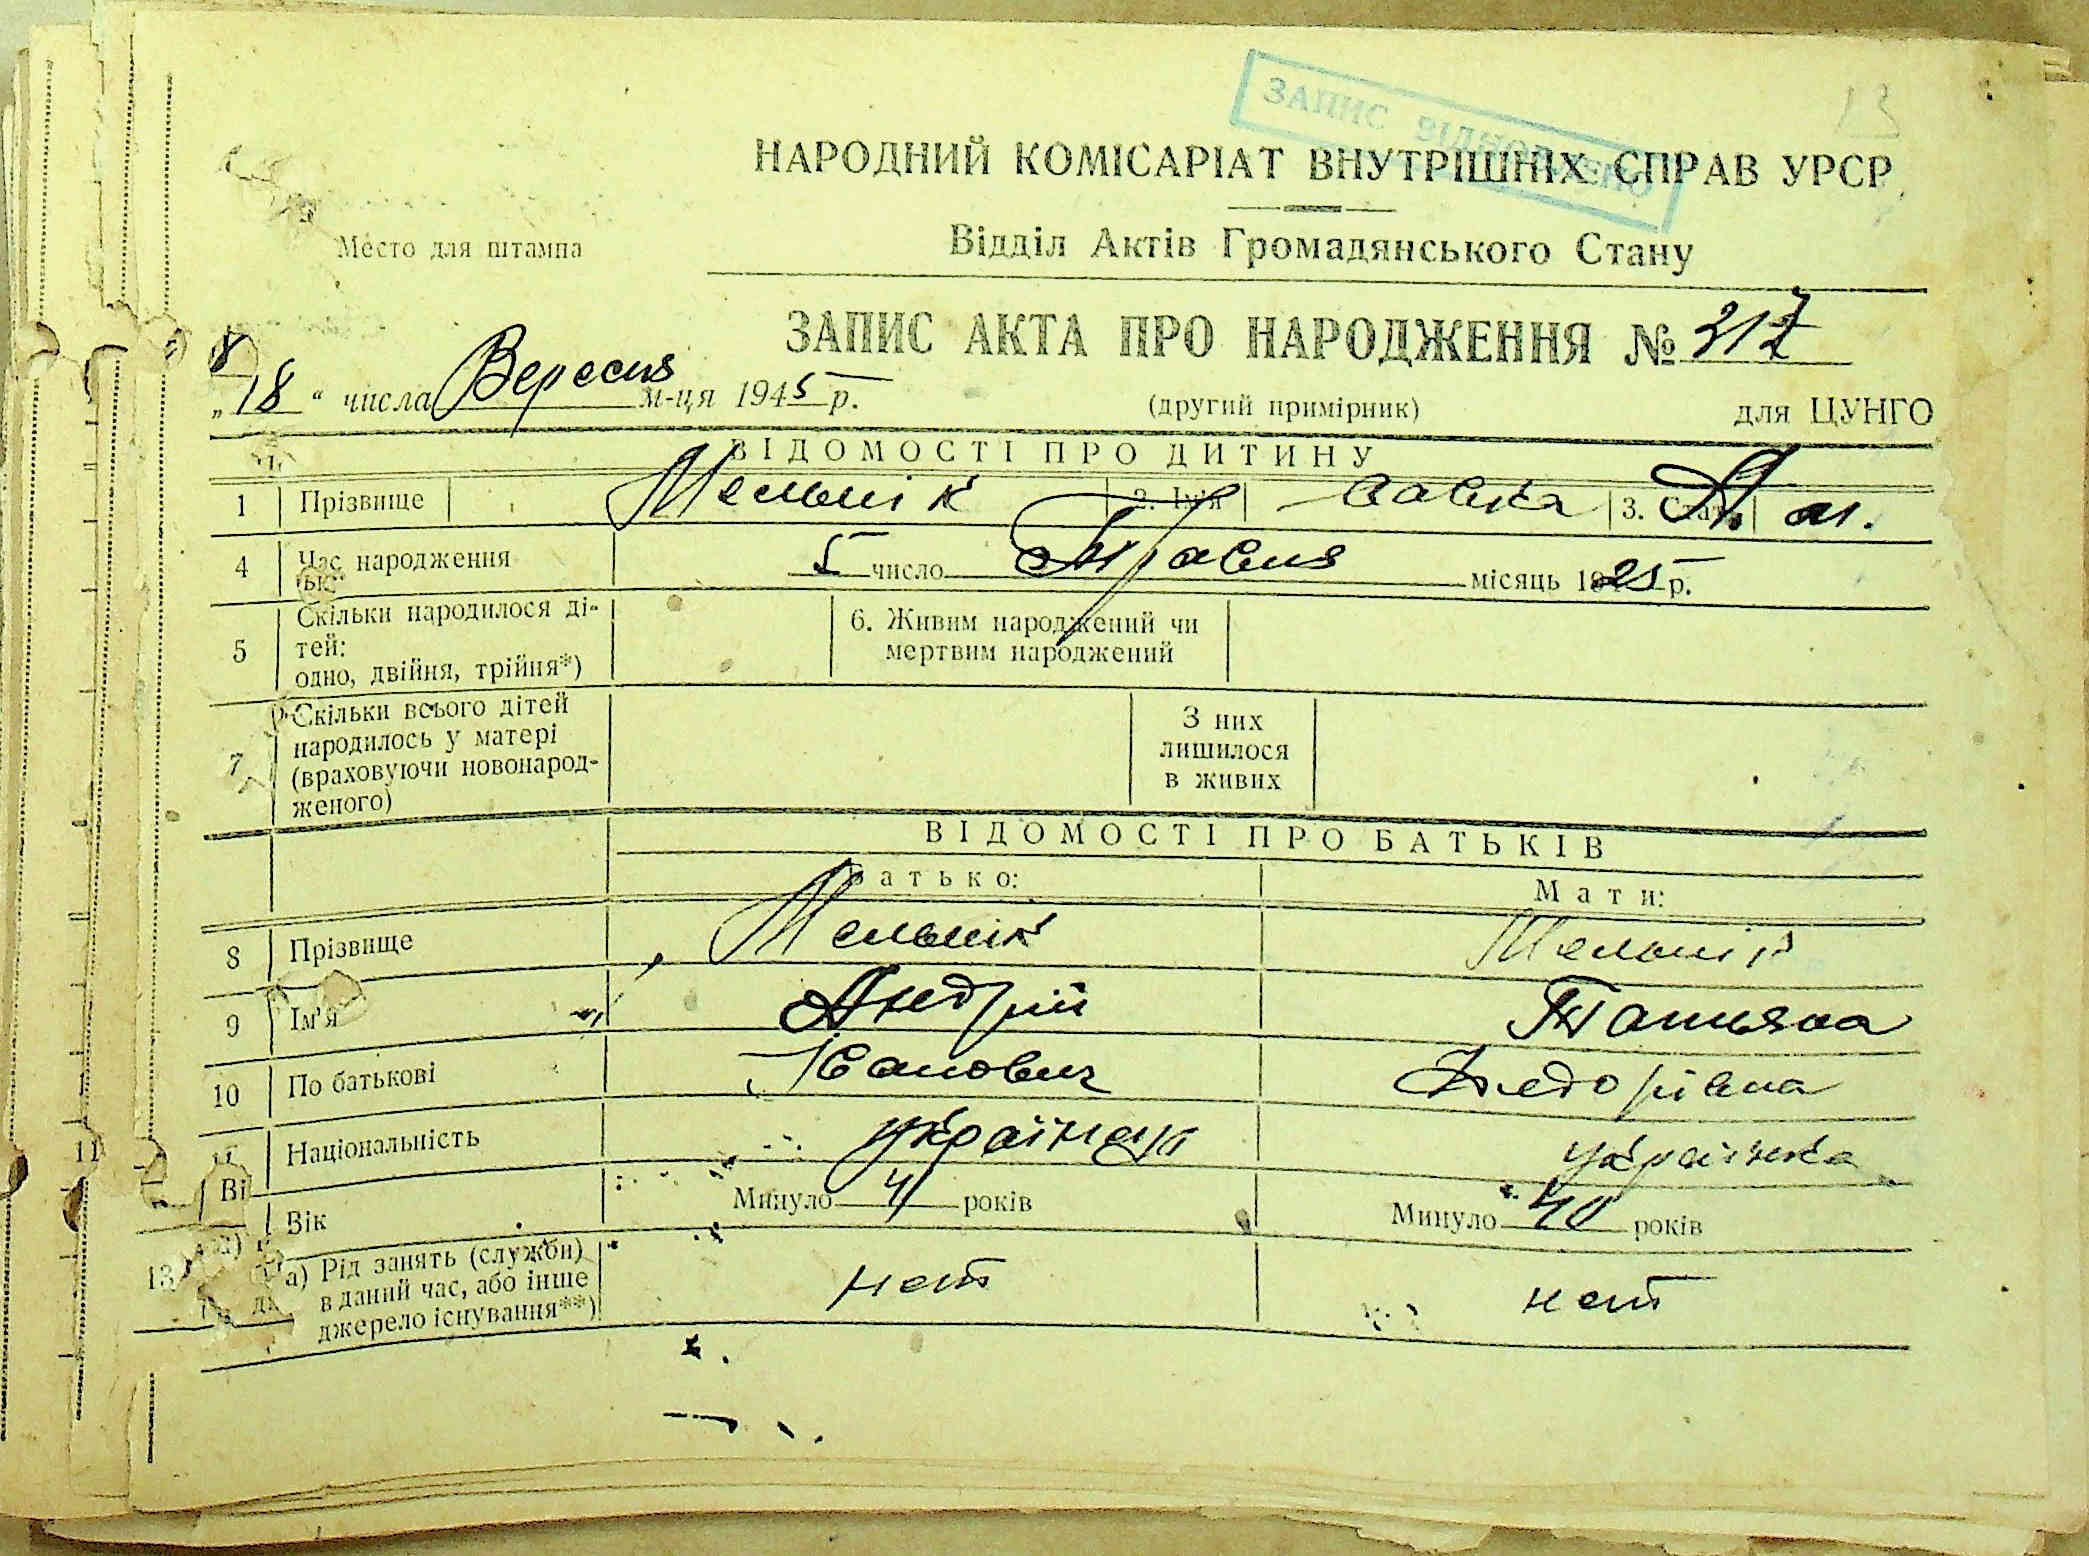 ЗАПИС ВІДНОВЛЕНО
13
НАРОДНИЙ КОМІСАРІАТ ВНУТРІШНІХ СПРАВ УРСР
Место для штампа
Відділ Актів Громадянського Стану
ЗАПИС АКТА ПРО НАРОДЖЕННЯ № 317
„18“ числа Вересня м-ця 1945 р.
(другий примірник) для ЦУНГО
ВІДОМОСТІ ПРО ДИТИНУ
1 Прізвище Мельнік 2. Ім'я 3. Стать
4 Час народження 5 число Травня місяць 1925 р.
5 Скільки народилося ді-
тей:
одно, двійня, трійня*)
6. Живим народжений чи
мертвим народжений
7 Скільки всього дітей
народилось у матері
(враховуючи новонарод-
женого)
З них
лишилося
в живих
ВІДОМОСТІ ПРО БАТЬКІВ
Батько: Мати:
8 Прізвище Мельнік Мельнік
9 Ім'я Андрій Татьяна
10 По батькові Іванович Федорівна
11 Національність українец українка
Ві
Вік Минуло 41 років Минуло 40 років
13 а) Рід занять (служби)
в даний час, або інше
джерело існування**)
нет нет